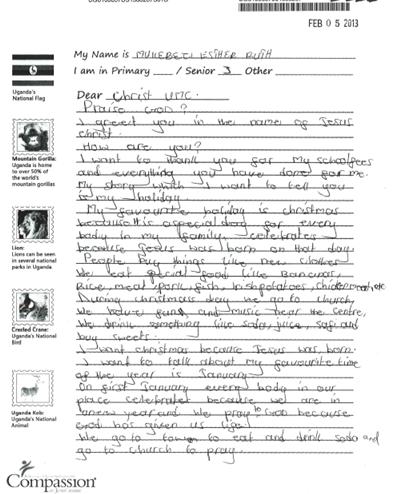 FEB 05 2013
My Name is MUKEBEZI ESTHER RUTH
I am in Primary ___ / Senior 3 Other ___
Uganda's
National Flag
Dear Christ UMC.
Praise GOD?
I greet you in the name of Jesus
christ.
How are you?
I want to thank you for My schoolfees
and everything you have done for me.
My story which I want to tell you
is my holiday.
My favourite holiday is christmas
because it is a special day for every
body in my family celebrates
because Jesus was born on that day.
People buy things like new clothes
We eat special food like Bananas,
Rice, meat, pork, fish, Irish potatoes, chicken
During christmas day we go to church,
We have fun and music near the centre,
We drink something like soda, juice, safi and
buy sweets.
I want christmas because Jesus was born.
I want to talk about my favourite time
of the year is January
On first January every body in our
place celebrates because we are in
a new year and We pray to GOD because
God has given us life.
We go to town to eat and drink soda and
go to church to pray.
Mountain Gorilla:
Uganda is home
to over 50% of
the world's
mountain gorillas
Lion:
Lions can be seen
in several national
parks in Uganda
Crested Crane:
Uganda's National
Bird
Uganda Kob:
Uganda's National
Animal
Compassion